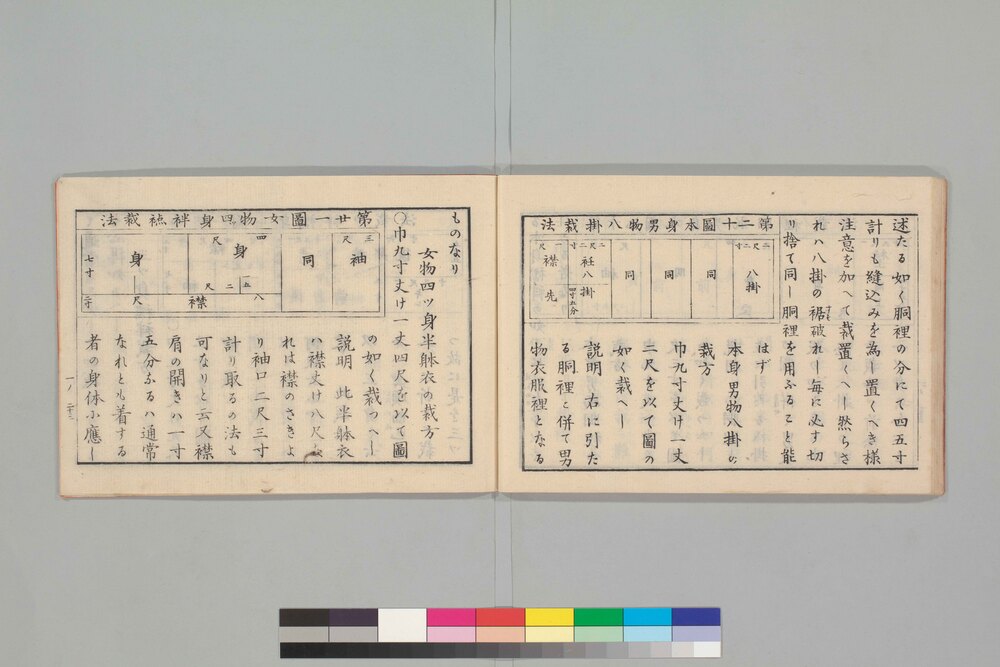 述たる如く胴裡の分にて四五寸
計りも縫込みを為し置くへき様
注意を加へて裁置くへし然らさ
れハ八掛の裾破れし毎に必す切
り捨て同し胴裡を用ふること能
はす
第二十圖本身男物八掛裁法
二尺二寸
八掛
同
同
同
二尺二寸
衽八掛
四寸五分
一尺
襟先
本身男物八掛の
裁方
巾九寸丈け一丈
二尺を以て圖の
如く裁へし
説明右に引た
る胴裡と併て男
物衣服裡となる
ものなり
女物四ッ身半躰衣の裁方
〇巾九寸丈け一丈四尺を以て圖
第廿一圖女物四身袢裁法
三尺
袖
同
四尺
身
一五
二尺
身
七寸
八尺
襟
二寸
の如く裁つへし
説明 此半躰衣
ハ襟丈け八尺
れは襟のさきよ
り袖口二尺三寸
計り取るの法も
可なりと云又襟
肩の開きハ一寸
五分なるハ通常
なれとも着する
者の身体小應し